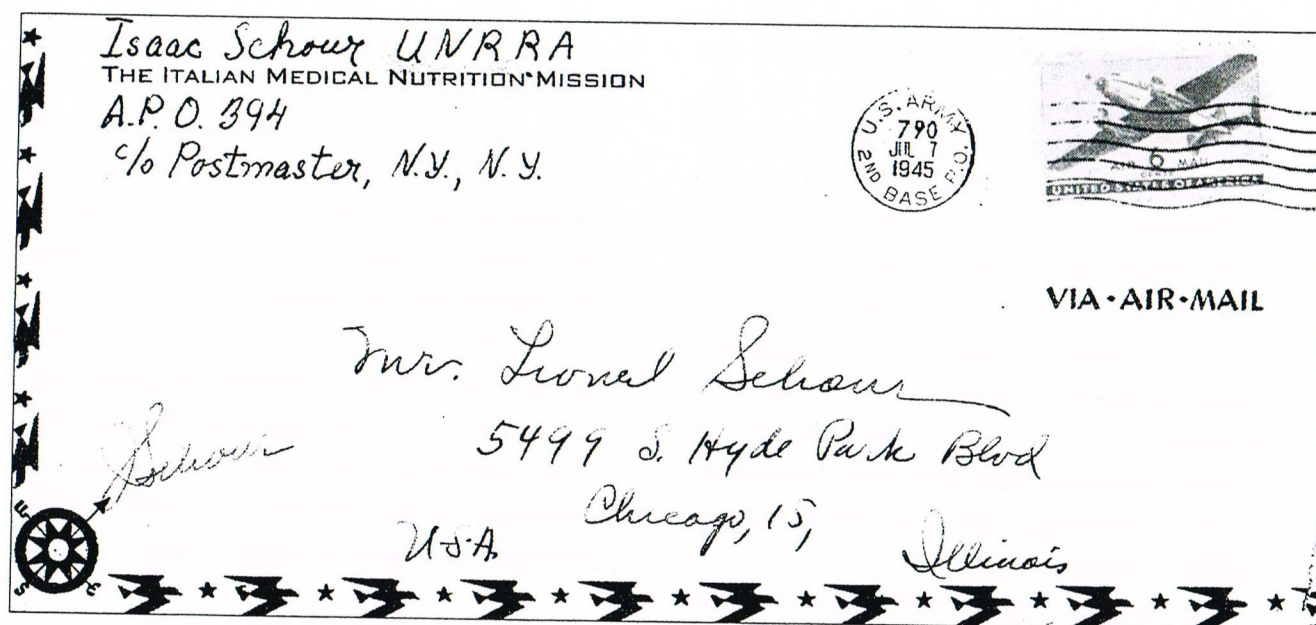 Isaac Schour UNRRA
THE ITALIAN MEDICAL NUTRITION MISSION
A.P.O. 394
c/o Postmaster, N.Y., N.Y.
U.S. ARMY
790
JUL 7
1945
2ND BASE P.O.
AIR 6 MAIL
CENTS
UNITED STATES OF AMERICA
VIA·AIR·MAIL
Mr. Lionel Schour
5499 S. Hyde Park Blvd
Chicago, 15,
Illinois
U.S.A.
Schour
W
S
E